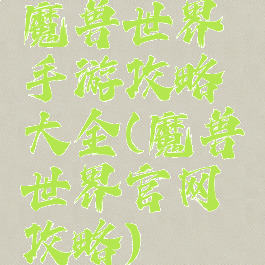 魔兽世界
手游攻略
大全(魔兽
世界官网
攻略)